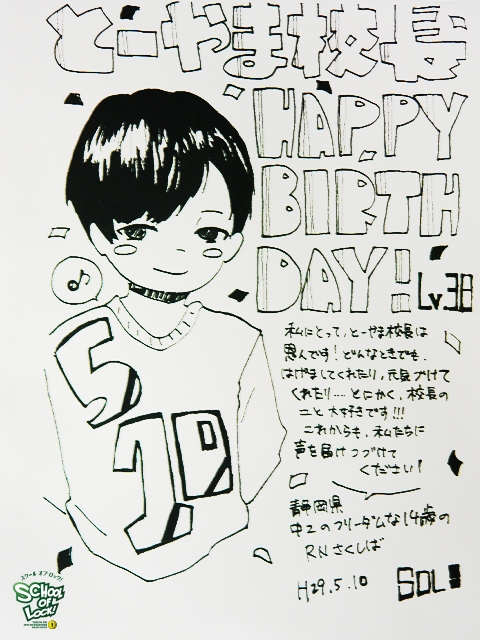 とーやま校長
HAPPY
BIRTH
DAY!
Lv.38
私にとって、とーやま校長は
恩人です！どんなときでも、
はげましてくれたり、元気づけて
くれたり....とにかく、校長の
こと大好きです!!!
これからも、私たちに
声を届けつづけて
ください！
静岡県
中2のフリーダムな14歳の
RNさくしば
H29.5.10
SOL!
スクール オブ ロック!
SCHOOL
OF
LOCK!